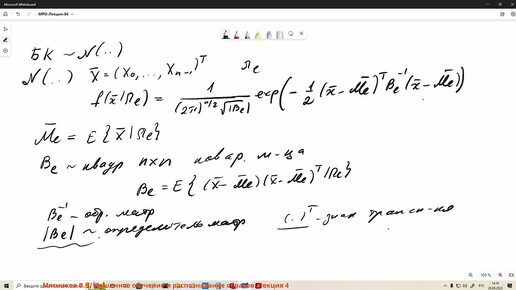 Microsoft Whiteboard
МРО-Лекция-04
БК ~ N(..)
N(..) x̄ = (x₀, ..., xₙ₋₁)ᵀ Ωₑ
f(x̄/Ωₑ) = 1 / ((2π)^(n/2) √|Bₑ|) exp(- 1/2 (x̄ - M̄ₑ)ᵀ Bₑ⁻¹ (x̄ - M̄ₑ))
M̄ₑ = E{x̄/Ωₑ}
Bₑ ~ квадр n×n ковар. м-ца
Bₑ = E{(x̄ - M̄ₑ)(x̄ - M̄ₑ)ᵀ/Ωₑ}
Bₑ⁻¹ - обр. матр
|Bₑ| ~ определитель матр (.)ᵀ - знак трансп-ия
Мясников В.В. Машинное обучение и распознавание образов Лекция 4
РУС
14:18